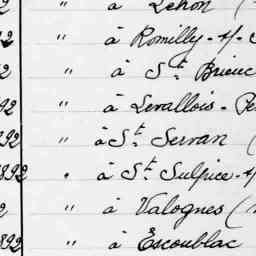 2 " à Lehon (
2 " à Romilly-s/-S
2 " à St Brieuc
92 " à Levallois-Pe
892 " à St Servan (
1892 " à St Sulpice-s
2 " à Valognes (
892 " à Escoublac